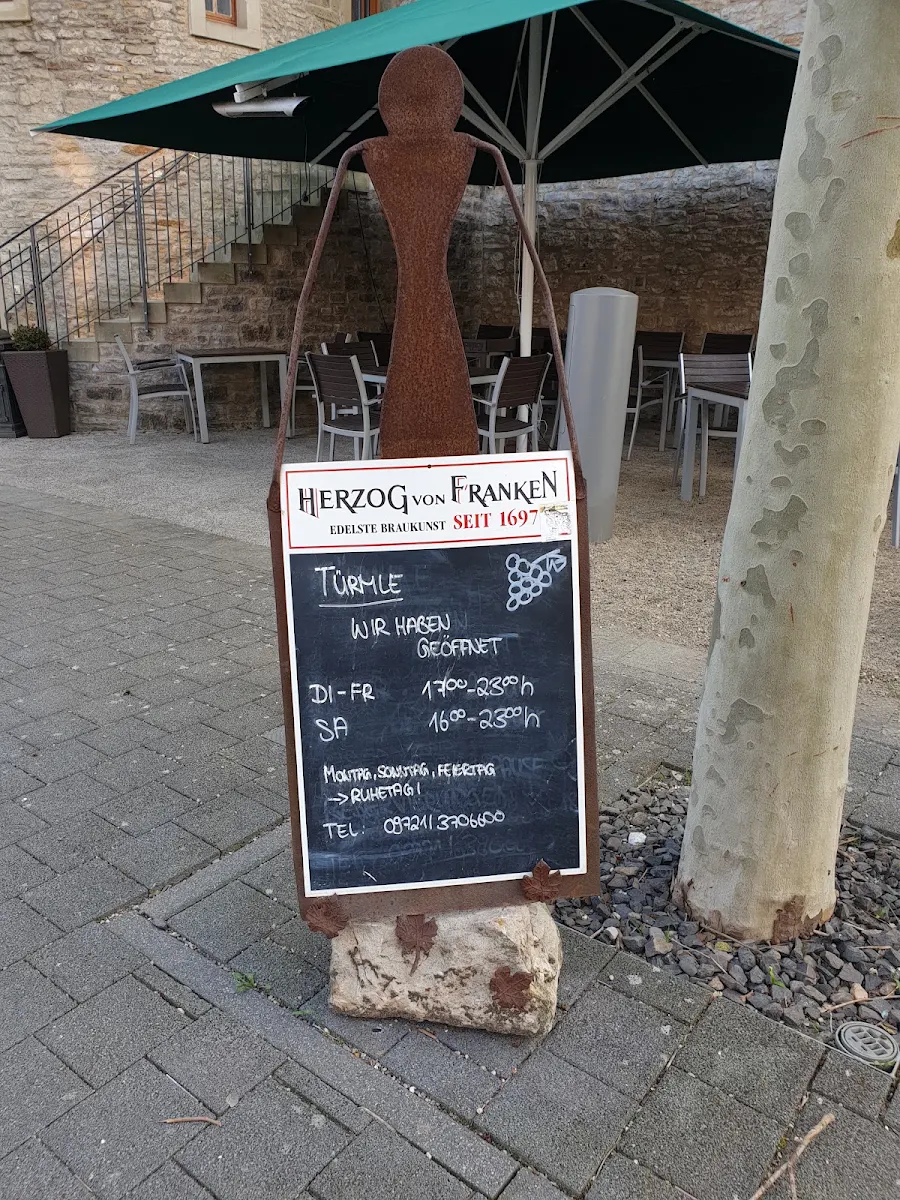 HERZOG VON FRANKEN
EDELSTE BRAUKUNST SEIT 1697
TÜRMLE
WIR HABEN
GEÖFFNET
DI-FR 17⁰⁰-23⁰⁰h
SA 16⁰⁰-23⁰⁰h
MONTAG, SONNTAG, FEIERTAG
→ RUHETAG!
TEL: 09721/3706600